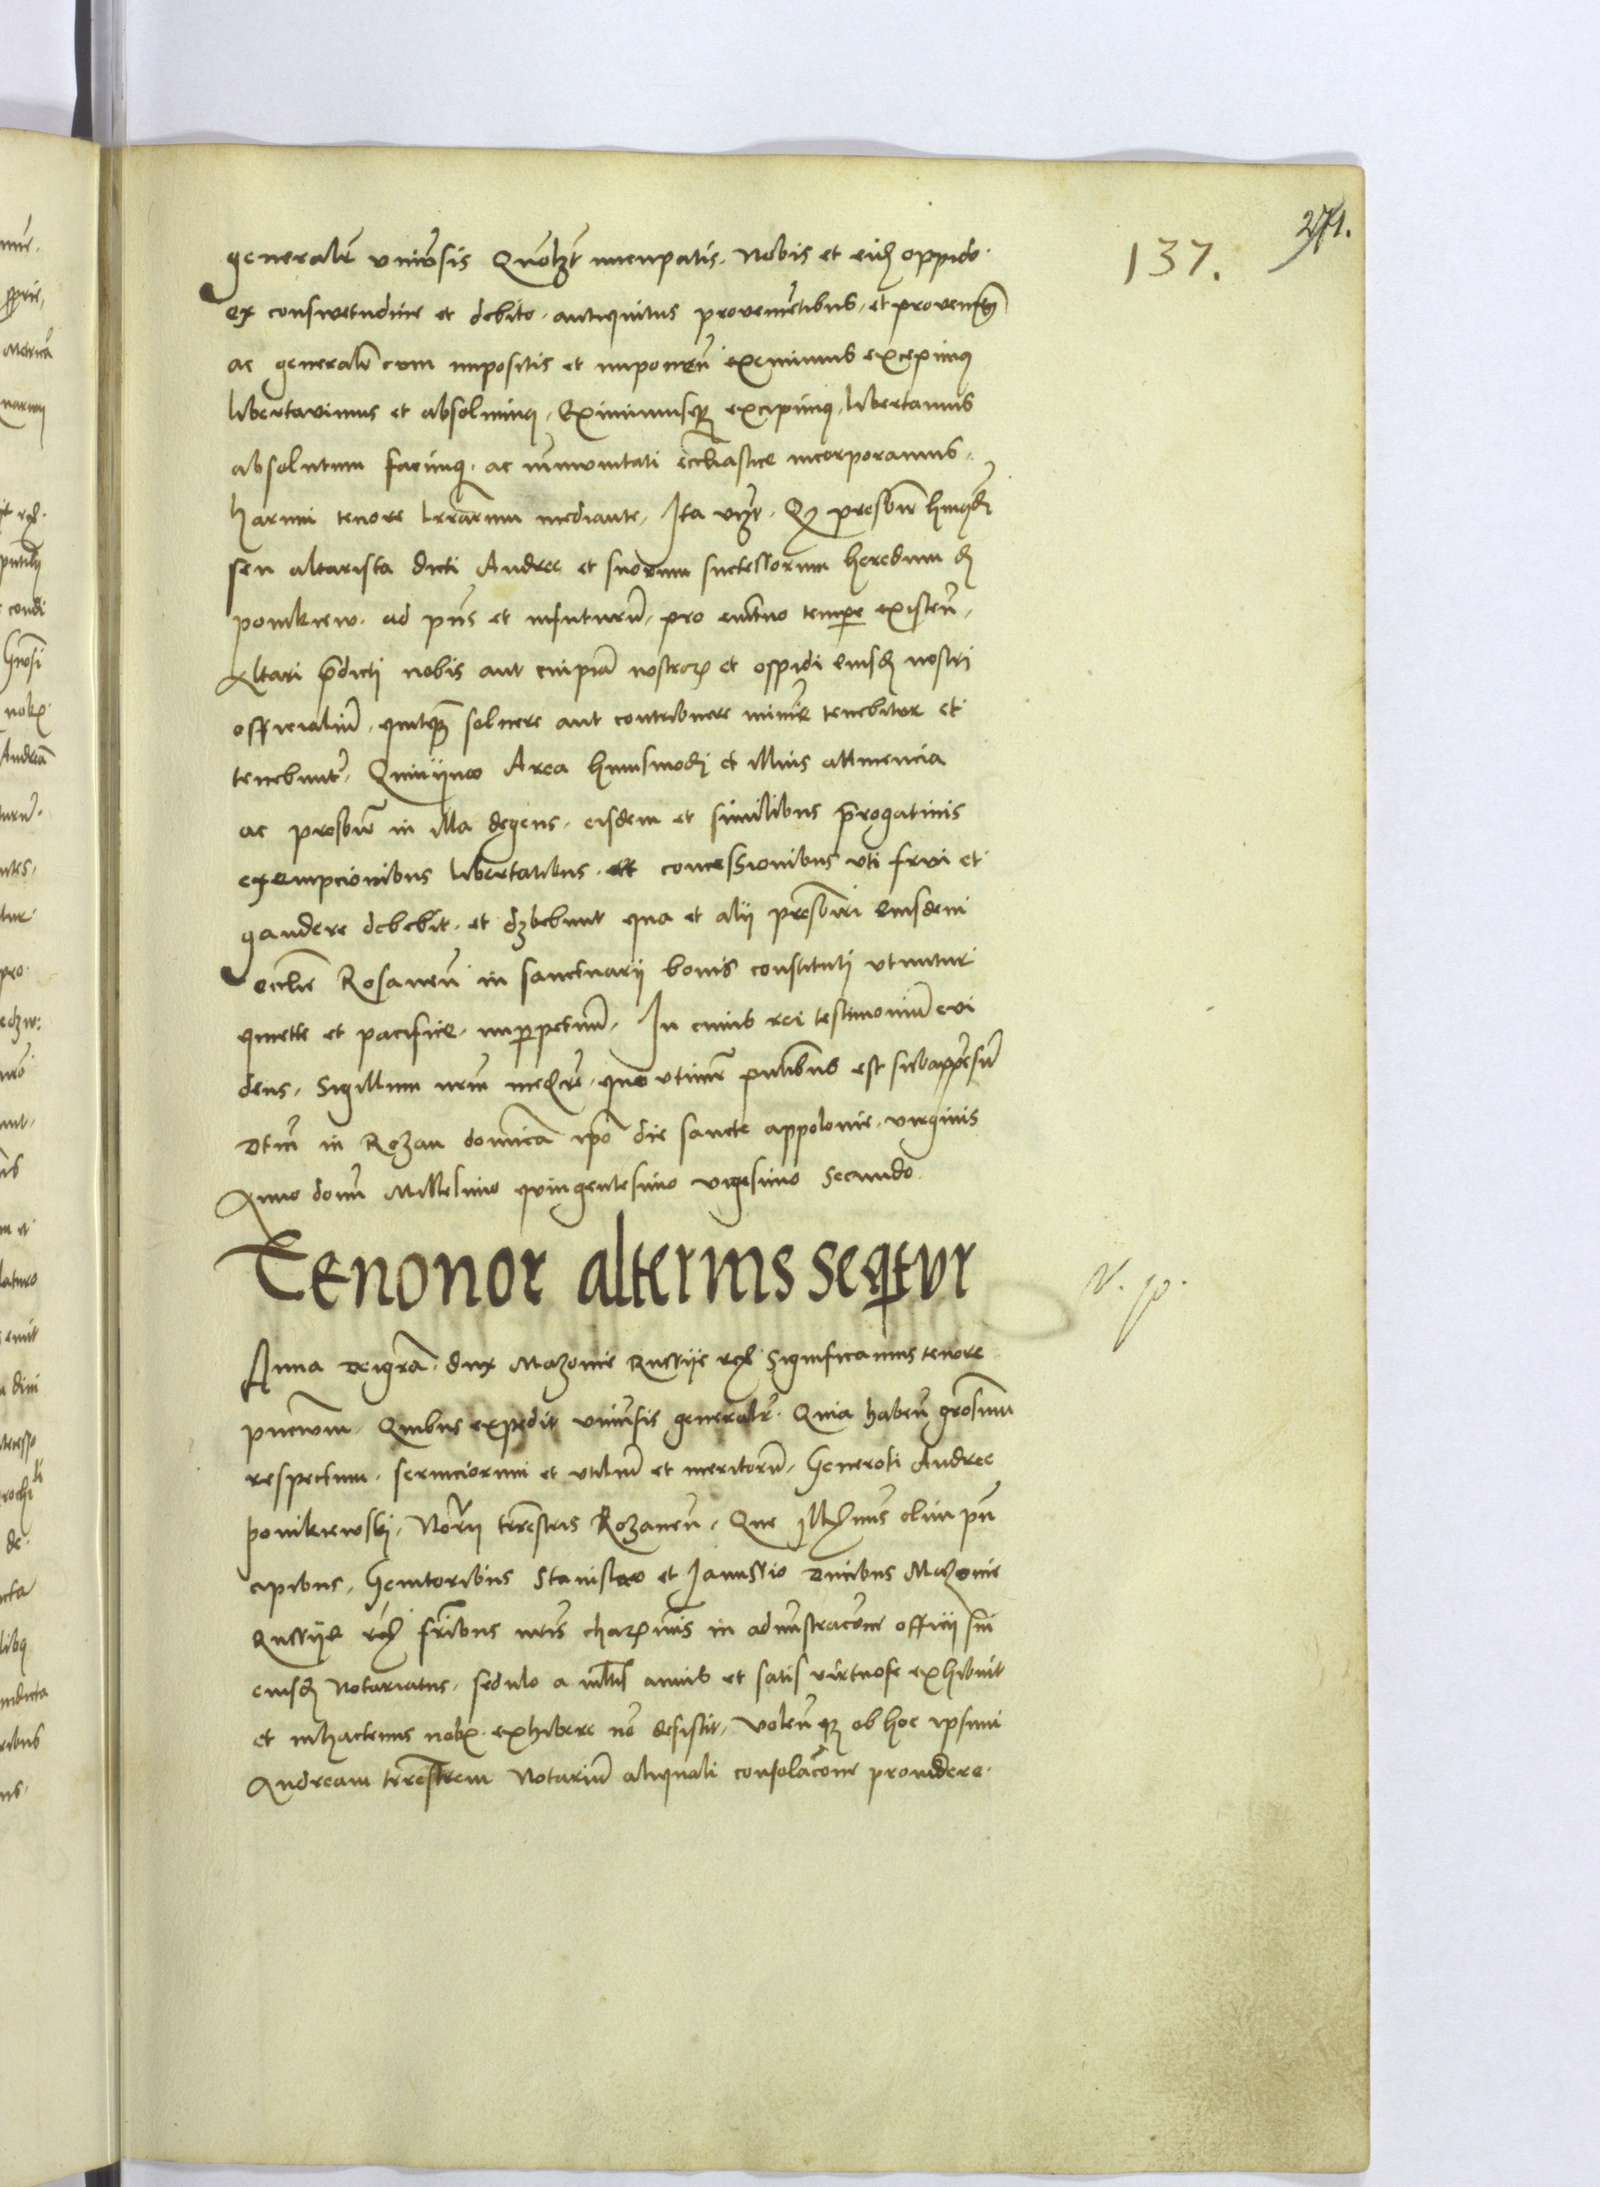 271.
137.
generalr̃ uniṽsis Quolꝫt nuncupatis. Nobis et eidꝫ oppido.
ex conswetudine et debito. antiquitus provenie͂tibus. et proventꝫ
ac generalr̃ cum impositis et imponen̄ exemimus excepimꝯ
libertavimus et absolvimꝯ. Eximimusqꝫ excipimꝯ. libertamus
absolutum facimꝯ. ac immunitati eccliastice incorporamus.
harum tenore lrarum mediante. Ita vꝫt. Qꝫ presbir̃ hmꝯdi
seu altarista dicti Andree et suorum successorum heredum d
ponikiew. ad pn̄s et infuturū. pro evitꝰo tempe existen̄.
Altari p̄dicti nobis aut cuipiā nostroꝝ et oppidi eiusdꝫ nostri
officialiū. quitqꝫ solvere aut contribuere minie tenebitur et
tenebunt̃. Quinÿmo Area huiusmodi et illius attinencia
ac presbir̃ in illa degens. eisdem et similibus p̄rogativis
exempcionibus libertatibus. ett concessionibus uti frui et
gaudere debebit. et debebunt qua et alij presbiri eiusdem
ecclie Rosanen̄ in sanctuarij bonis constituti utuntur
quiette et pacifice. imꝑpetuū. In cuius rei testimoniū evi
dens. Sigillum nrm̄ quo utimr̃ pn̄tibus est subappēsū
Dtm̄ in Rozan dominica ipo die sancte appolonie. virginis
Anno domī Millesimo quingentesimo vigesimo secundo.
Tenonor alterius seqtur
N. p.
Anna Deigrā. dux Mazovie Russije rcꝫ Significamus tenore
pn̄cium. Quibus expedit uniṽsis generalr̃. Quia haben̄ grosum
respectum. serviciorum et utiliū et meritorū. Generosi Andree
ponikiewski. Notꝛij terrestris Rozanen̄. Que Illꝰmis olim prin
cipibus. Genitoribus Stanislao et Janussio Ducibus Mazovie
Russije rcꝫ frībus nris charꝰmis in admīstracōne officij sui
eiusdꝫ Notariatus. sedulo a mltis annis et satis virtuose exhibuit
et inhactenus nobꝫ. exhibere nō desistit. volen̄ qꝫ ob hoc ipsum
Andream terrestrem Notariū aliquali consolacōne providere.